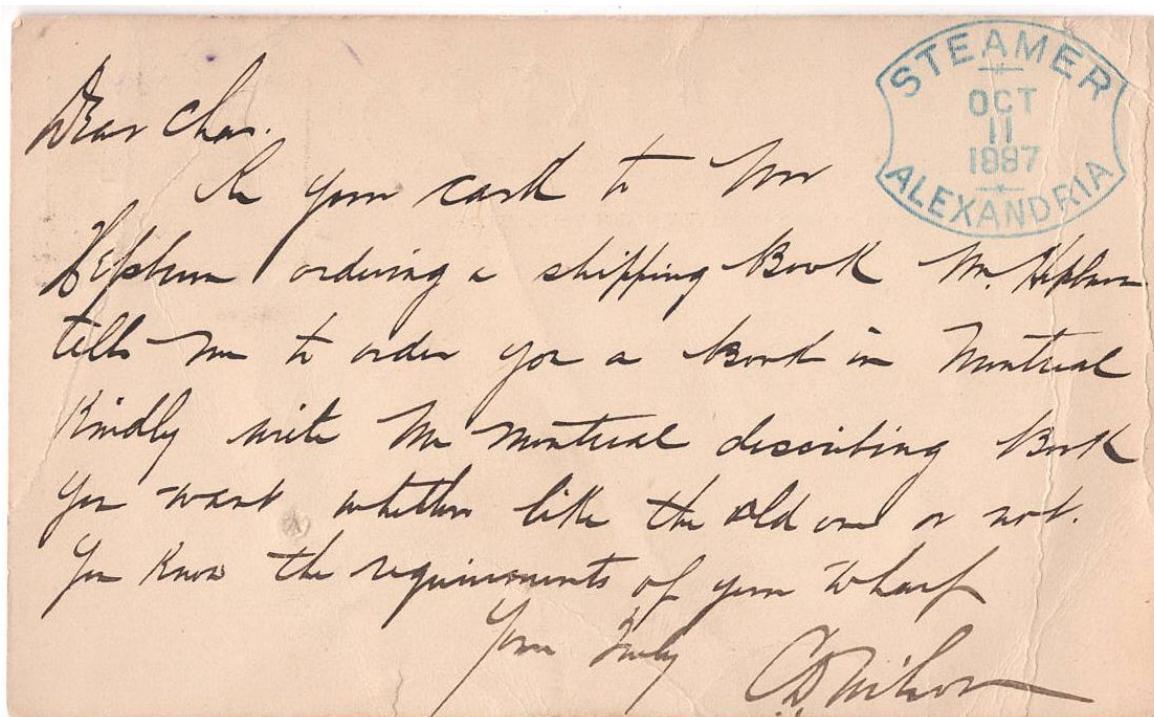 STEAMER
OCT
11
1887
ALEXANDRIA
Dear Chas.
In your card to Mr
Hepburn ordering a shipping Book Mr. Hepburn
tells me to order you a Book in Montreal
Kindly write me Montreal describing Book
you want whether like the old one or not.
You know the requirements of your wharf
Yours Truly